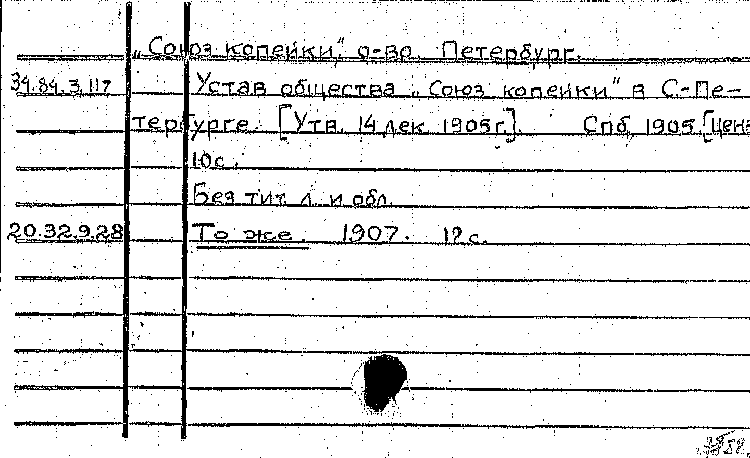 „Союз копейки“, о-во. Петербург.
34.84.3.117 Устав общества „Союз копейки“ в С.-Пе-
тербурге. [Утв. 14 дек. 1905 г.]. Спб, 1905. [Цена
10 с.
Без тит. л. и обл.
20.32.9.28 То же. 1907. 12 с.